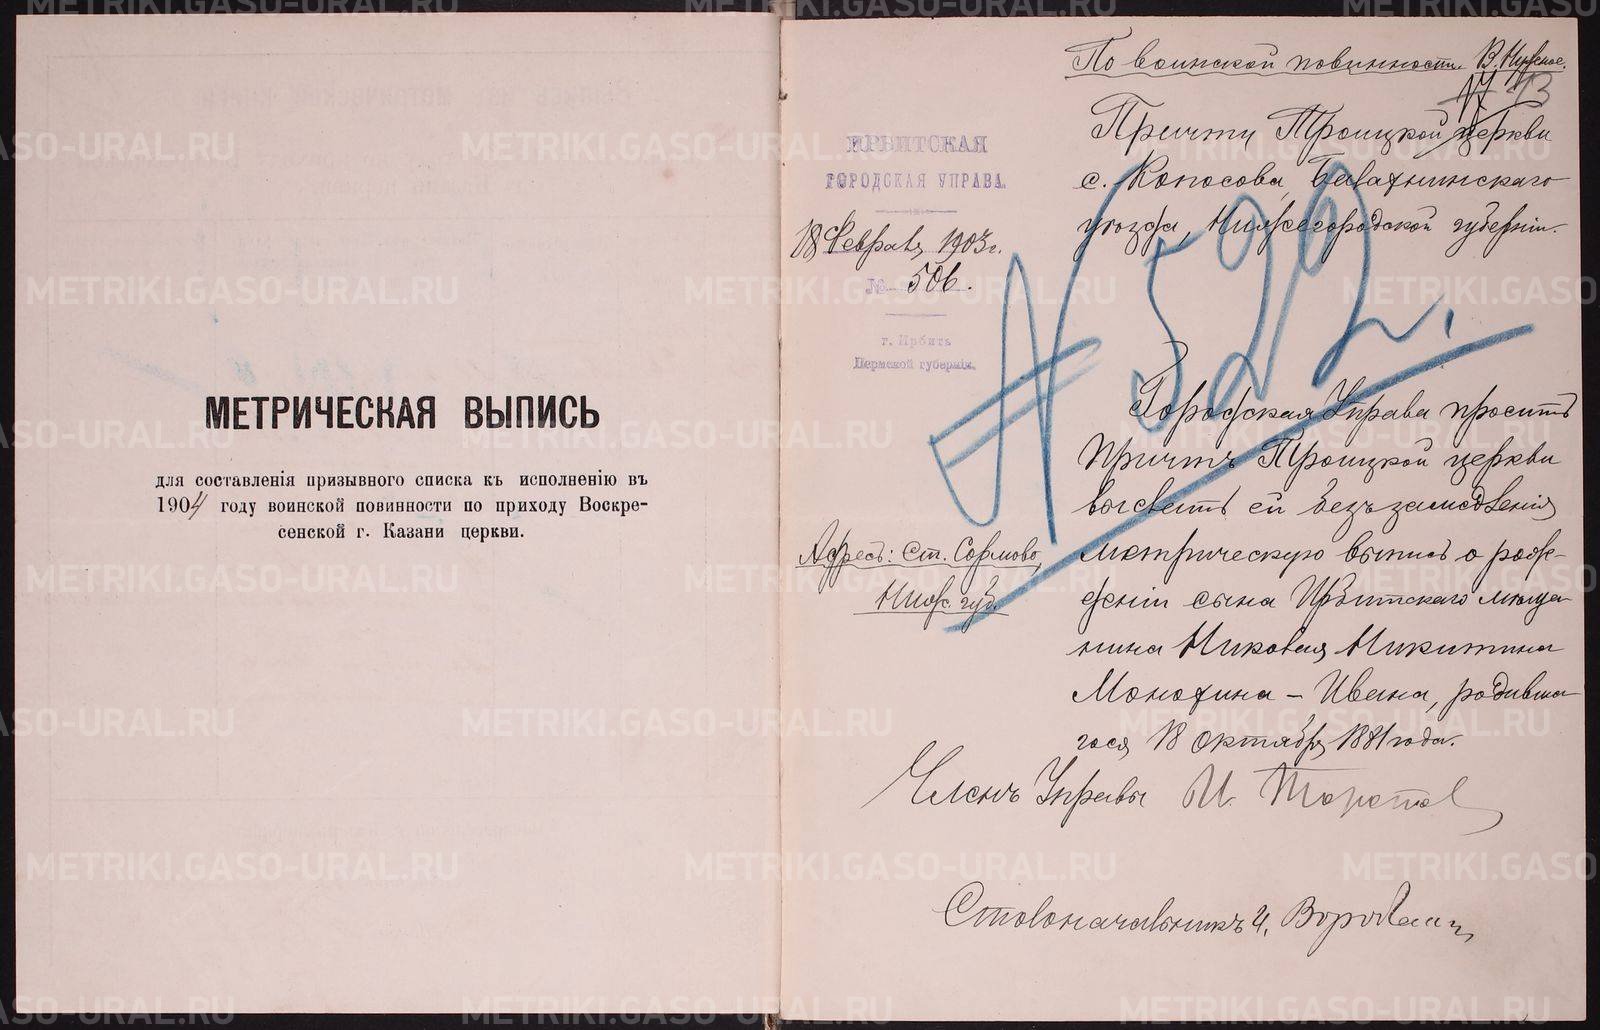 МЕТРИЧЕСКАЯ ВЫПИСЬ
для составленія призывного списка къ исполненію въ
1904 году воинской повинности по приходу Воскре-
сенской г. Казани церкви.
По воинской повинности. В. Нужное.
17 13
ИРБИТСКАЯ
ГОРОДСКАЯ УПРАВА.
18 Февраля 1903 г.
№ 506.
г. Ирбитъ
Пермской губерніи.
Причту Троицкой церкви
с. Копосова, Балахнинскаго
уѣзда, Нижегородской губерніи.
№ 592.
Городская Управа проситъ
Причтъ Троицкой церкви
выслать ей безъ замедленія
метрическую выпись о рож-
деніи сына Ирбитскаго мѣща-
нина Николая Никитина
Монохина – Ивана, родивша-
гося 18 Октября 1881 года.
Адресъ: Ст. Сормово,
Ниж. губ.
Членъ Управы И.
Столоначальникъ И.
METRIKI.GASO-URAL.RU